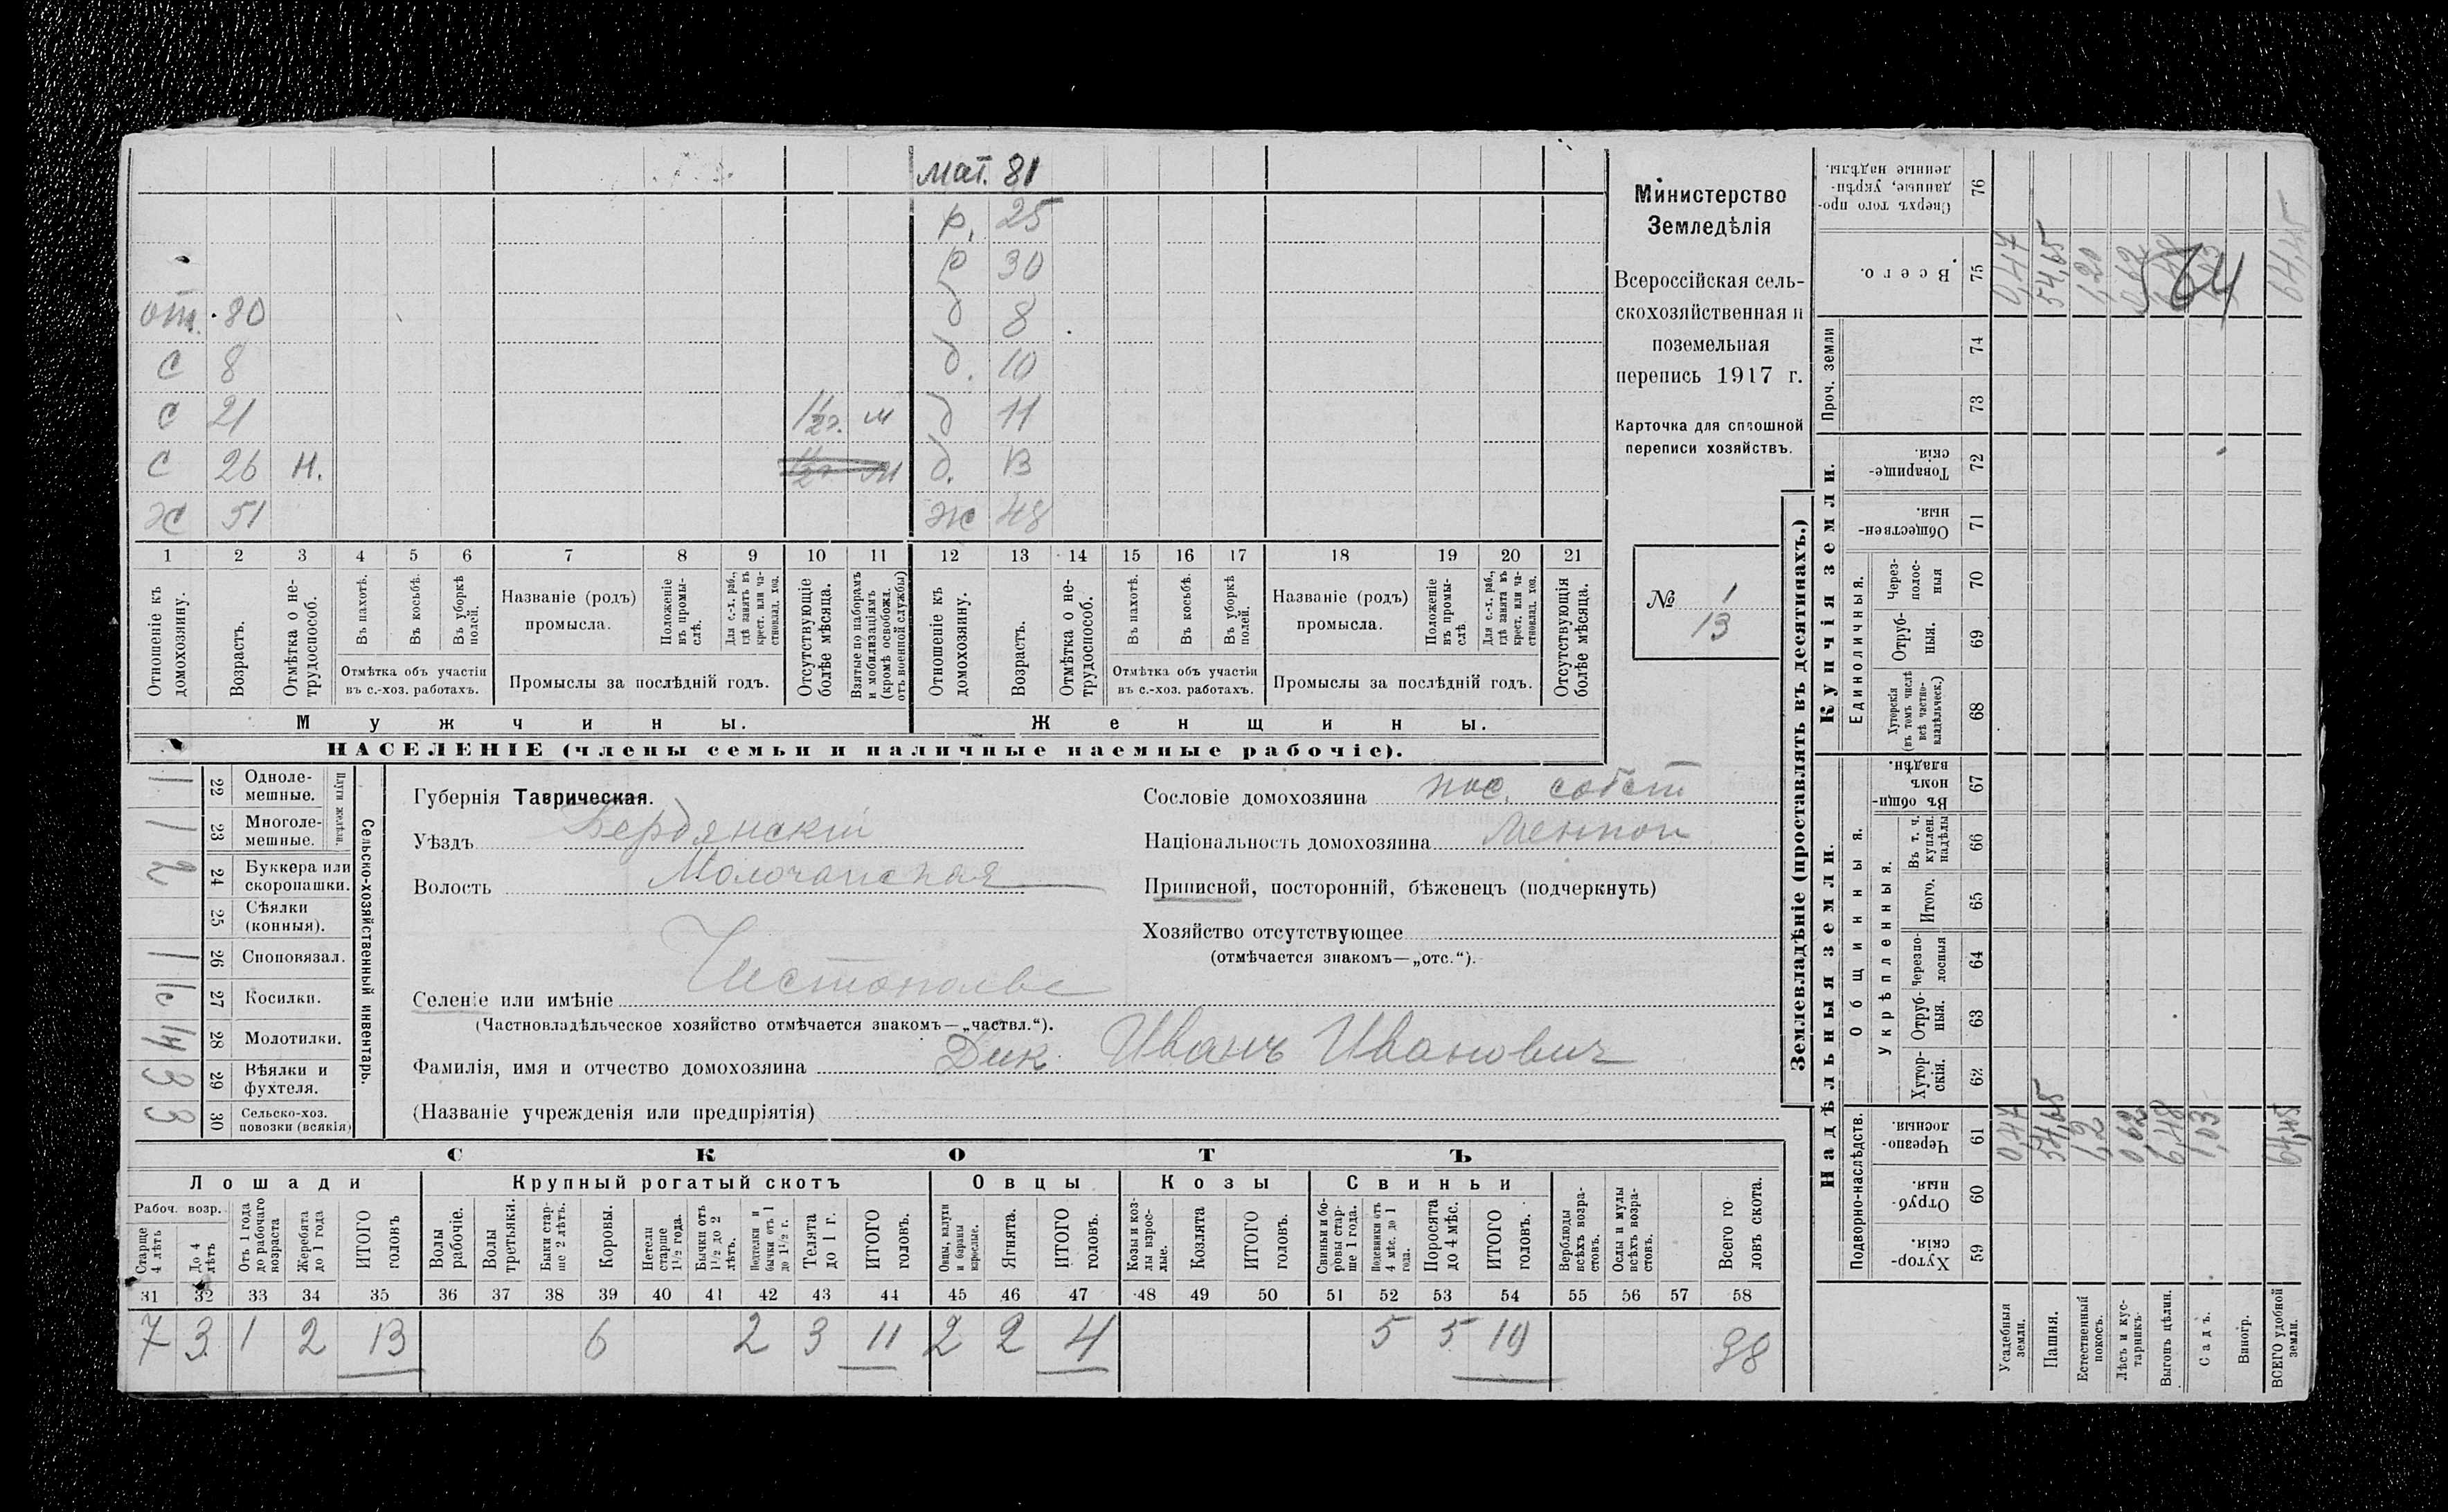 мат. 81
р. 25
р 30
от. 80 д 8
с 8 д. 10
с 21 1 1/2 г. м д 11
с 26 н. д. 13
ж 51 жс 48
1 2 3 4 5 6 7 8 9 10 11 12 13 14 15 16 17 18 19 20 21
Отношеніе къ домохозяину.
Возрастъ.
Отмѣтка о не-трудоспособ.
Въ пахотѣ.
Въ косьбѣ.
Въ уборкѣ полей.
Отмѣтка объ участіи
въ с.-хоз. работахъ.
Названіе (родъ)
промысла.
Положеніе въ промы-слѣ.
Для с.-х. раб., гдѣ занятъ въ крест. или ча-стновлад. хоз.
Промыслы за послѣдній годъ.
Отсутствующіе болѣе мѣсяца.
Взятые по наборамъ и мобилизаціямъ (кромѣ освобожд. отъ военной службы)
Отношеніе къ домохозяину.
Возрастъ.
Отмѣтка о не-трудоспособ.
Въ пахотѣ.
Въ косьбѣ.
Въ уборкѣ полей.
Отмѣтка объ участіи
въ с.-хоз. работахъ.
Названіе (родъ)
промысла.
Положеніе въ промы-слѣ
Для с.-х. раб., гдѣ занята въ крест. или ча-стновлад. хоз.
Промыслы за послѣдній годъ.
Отсутствующія болѣе мѣсяца.
Мужчины. Женщины.
НАСЕЛЕНІЕ (члены семьи и наличные наемные рабочіе).
Министерство
Земледѣлія
Всероссійская сель-
скохозяйственная и
поземельная
перепись 1917 г.
Карточка для сплошной
переписи хозяйствъ.
№ 1
13
Сельско-хозяйственный инвентарь.
Плуги желѣзн.
1 22 Одноле-мешные.
1 23 Многоле-мешные.
2 24 Буккера или скоропашки.
25 Сѣялки (конныя).
1 26 Сноповязал.
1с 27 Косилки.
28 Молотилки.
3 29 Вѣялки и фухтеля.
3 30 Сельско-хоз. повозки (всякія)
Губернія Таврическая.
Уѣздъ Бердянскій
Волость Молочанская
Селеніе или имѣніе Чистополье
(Частновладѣльческое хозяйство отмѣчается знакомъ—„частвл.“).
Фамилія, имя и отчество домохозяина Дик Иванъ Иванович
(Названіе учрежденія или предпріятія)
Сословіе домохозяина пос. собст
Національность домохозяина Меннон
Приписной, посторонній, бѣженецъ (подчеркнуть)
Хозяйство отсутствующее
(отмѣчается знакомъ—„отс.“).
СКОТЪ
Лошади Крупный рогатый скотъ Овцы Козы Свиньи
Рабоч. возр.
Старше 4 лѣтъ
До 4 лѣтъ
Отъ 1 года до рабочаго возраста
Жеребята до 1 года
ИТОГО головъ
Волы рабочіе.
Волы третьяки.
Быки стар-ше 2 лѣтъ.
Коровы.
Нетели старше 1½ года.
Бычки отъ 1½ до 2 лѣтъ.
Подтелки и бычки отъ 1 до 1½ г.
Телята до 1 г.
ИТОГО головъ.
Овцы, валухи и бараны взрослые.
Ягнята.
ИТОГО головъ.
Козы и коз-лы взрос-лые.
Козлята
ИТОГО головъ.
Свиньи и бо-ровы стар-ше 1 года.
Подсвинки отъ 4 мѣс. до 1 года.
Поросята до 4 мѣс.
ИТОГО головъ.
Верблюды всѣхъ возра-стовъ.
Ослы и мулы всѣхъ возра-стовъ.
Всего го-ловъ скота.
31 32 33 34 35 36 37 38 39 40 41 42 43 44 45 46 47 48 49 50 51 52 53 54 55 56 57 58
7 3 1 2 13 6 2 3 11 2 2 4 5 5 10 38
Землевладѣніе (проставлять въ десятинахъ.)
Купчія земли.
Надѣльныя земли.
Проч. земли
Единоличныя.
Общинныя.
Укрѣпленныя.
Подворно-наслѣдств.
Сверхъ того про-данные, укрѣп-ленные надѣлы. 76
Всего. 75
74
73
Товарище-скія. 72
Обществен-ныя. 71
Через-полос-ныя 70
Отруб-ныя. 69
Хуторскія (въ томъ числѣ всѣ частно-владѣльческ.) 68
Въ общи-номъ владѣн. 67
Въ т. ч. куплен. надѣлы 66
Итого. 65
Черезпо-лосныя 64
Отруб-ныя. 63
Хутор-скія. 62
Черезпо-лосныя. 61
Отруб-ныя. 60
Хутор-скія. 59
Усадебныя земли. 0,47 0,47
Пашня. 54,65 54,65
Естественный покосъ. 1,2 1,20
Лѣсъ и кус-тарникъ 0,62 0,62
Выгонъ цѣлин. 6,48
Садъ. 1,03
Виногр.
ВСЕГО удобной земли. 64,45 64,45
64